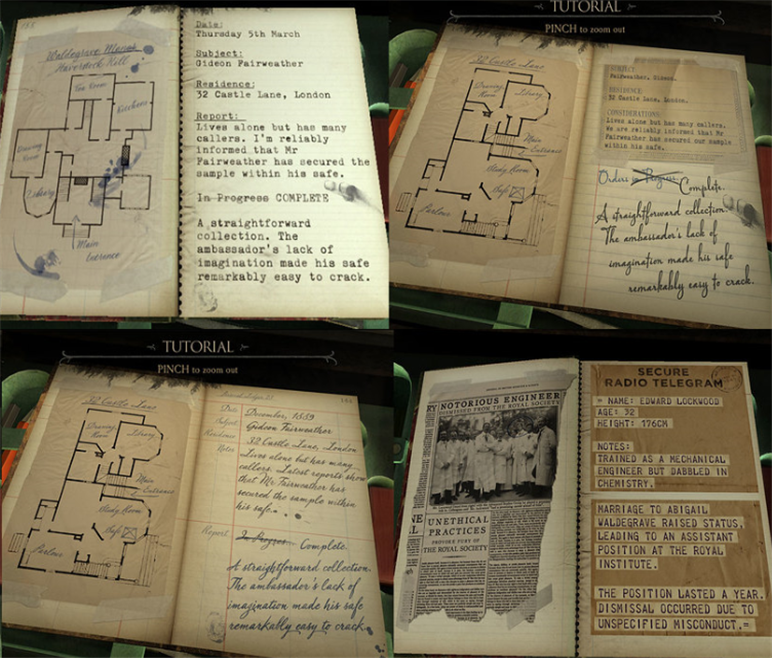 Waldegrave Manor
Haverstock Hill
Tea Room
Kitchens
Drawing
Room
Library
Main
Entrance
Date:
Thursday 5th March
Subject:
Gideon Fairweather
Residence:
32 Castle Lane, London
Report:
Lives alone but has many
callers. I'm reliably
informed that Mr
Fairweather has secured the
sample within his safe.
In Progress COMPLETE
A straightforward
collection. The
ambassador's lack of
imagination made his safe
remarkably easy to crack.
TUTORIAL
PINCH to zoom out
32 Castle Lane
Drawing
Room
Library
Main
Entrance
Study Room
Safe
Parlour
SUBJECT
Fairweather, Gideon.
RESIDENCE
32 Castle Lane, London.
CONSIDERATIONS
Lives alone but has many callers.
We are reliably informed that Mr
Fairweather has secured our sample
within his safe.
Orders in Progress Complete.
A straightforward collection.
The ambassador's lack of
imagination made his safe
remarkably easy to crack.
TUTORIAL
PINCH to zoom out
32 Castle Lane
Drawing
Room
Library
Main
Entrance
Study Room
Safe
Parlour
Date December, 1559
Subject Gideon Fairweather
Residence 32 Castle Lane, London
Notes Lives alone but has many
callers. Latest reports show
that Mr Fairweather has
secured the sample within
his safe.
Report In Progress Complete.
A straightforward collection.
The ambassador's lack of
imagination made his safe
remarkably easy to crack.
RY NOTORIOUS ENGINEER
DISMISSED FROM THE ROYAL SOCIETY
UNETHICAL
PRACTICES
PROVOKE FURY OF
THE ROYAL SOCIETY
SECURE
RADIO TELEGRAM
= NAME: EDWARD LOCKWOOD
AGE: 32
HEIGHT: 176CM
NOTES:
TRAINED AS A MECHANICAL
ENGINEER BUT DABBLED IN
CHEMISTRY.
MARRIAGE TO ABIGAIL
WALDEGRAVE RAISED STATUS.
LEADING TO AN ASSISTANT
POSITION AT THE ROYAL
INSTITUTE.
THE POSITION LASTED A YEAR.
DISMISSAL OCCURRED DUE TO
UNSPECIFIED MISCONDUCT.=